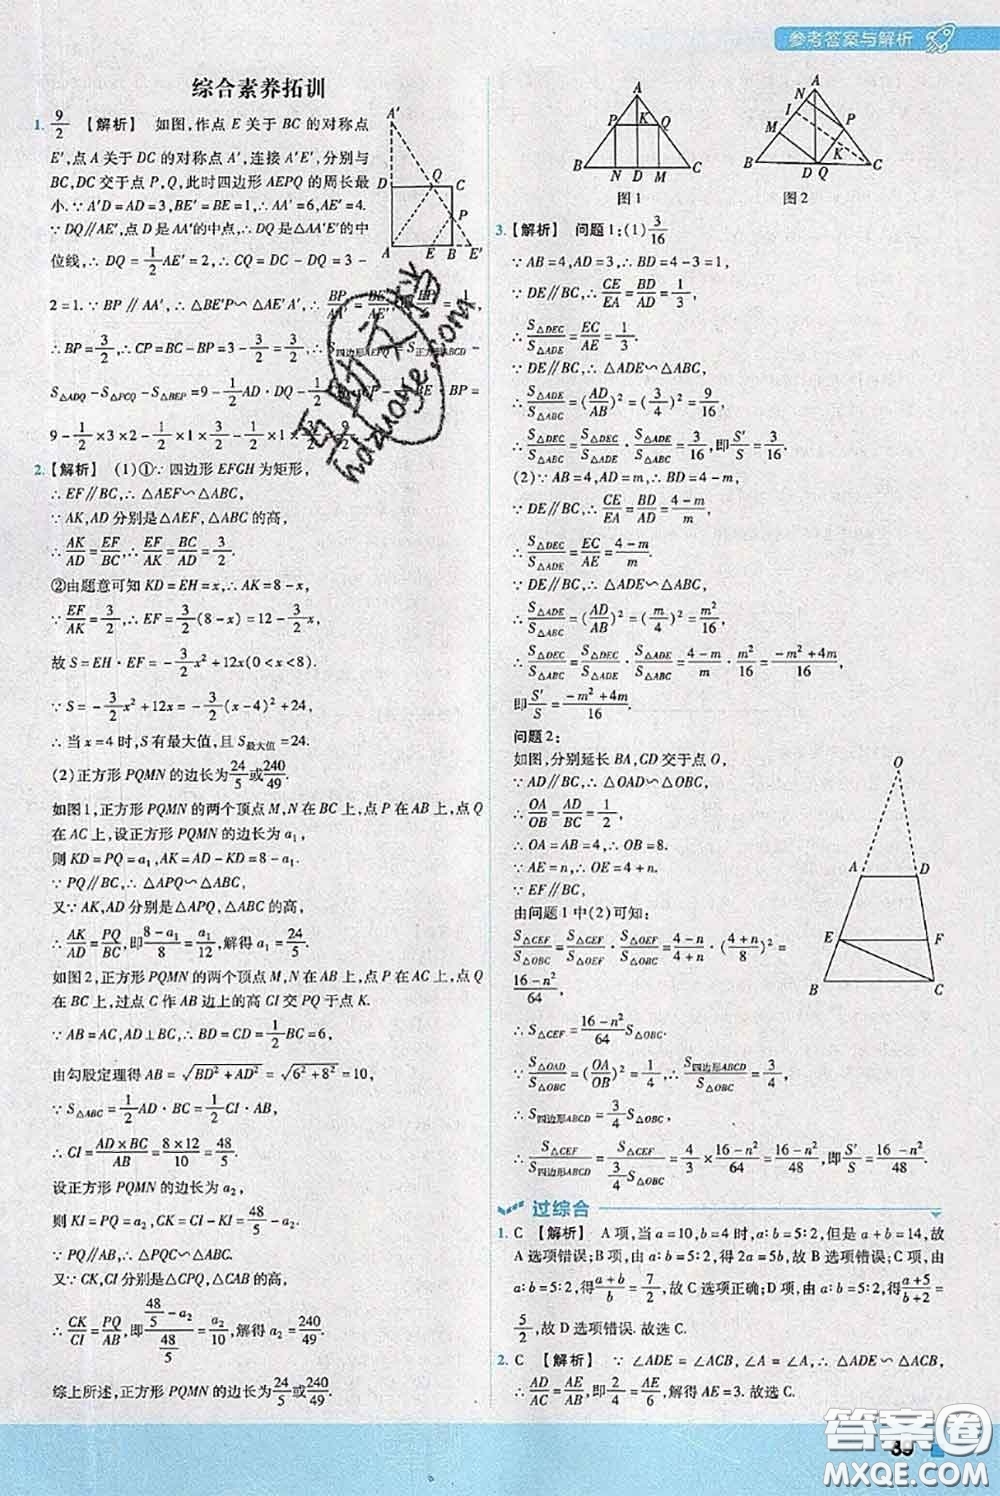 参考答案与解析
综合素养拓训
1. 9/2 【解析】 如图,作点 E 关于 BC 的对称点
E′,点 A 关于 DC 的对称点 A′,连接 A′E′,分别与
BC,DC 交于点 P,Q,此时四边形 AEPQ 的周长最
小.∵A′D=AD=3,BE′=BE=1,∴AA′=6,AE′=4.
∵DQ∥AE′,点 D 是 AA′的中点,∴DQ 是△AA′E′的中
位线,∴DQ=1/2AE′=2,∴CQ=DC-DQ=3-
2=1.∵BP∥AA′,∴△BE′P∽△AE′A′,∴BP/AA′=BE′/AE′,即BP/6=1/4,
∴BP=3/2,∴CP=BC-BP=3-3/2=3/2,∴S四边形AEPQ=S正方形ABCD-
S△ADQ-S△PCQ-S△BEP=9-1/2AD·DQ-1/2CQ·CP-1/2BE·BP=
9-1/2×3×2-1/2×1×3/2-1/2×1×3/2=9/2.
2.【解析】 (1)①∵四边形 EFGH 为矩形,
∴EF∥BC,∴△AEF∽△ABC,
∵AK,AD 分别是△AEF,△ABC 的高,
∴AK/AD=EF/BC,∴EF/AK=BC/AD=3/2.
②由题意可知 KD=EH=x,∴AK=8-x,
∵EF/AK=3/2,∴EF=3/2(8-x)=12-3/2x,
故 S=EH·EF=-3/2x²+12x(0<x<8).
∵S=-3/2x²+12x=-3/2(x-4)²+24,
∴当 x=4 时,S 有最大值,且 S最大值=24.
(2)正方形 PQMN 的边长为24/5或240/49.
如图1,正方形 PQMN 的两个顶点 M,N 在 BC 上,点 P 在 AB 上,点 Q
在 AC 上,设正方形 PQMN 的边长为 a₁,
则 KD=PQ=a₁,AK=AD-KD=8-a₁.
∵PQ∥BC,∴△APQ∽△ABC,
又∵AK,AD 分别是△APQ,△ABC 的高,
∴AK/AD=PQ/BC,即(8-a₁)/8=a₁/12,解得 a₁=24/5.
如图2,正方形 PQMN 的两个顶点 M,N 在 AB 上,点 P 在 AC 上,点 Q
在 BC 上,过点 C 作 AB 边上的高 CI 交 PQ 于点 K.
∵AB=AC,AD⊥BC,∴BD=CD=1/2BC=6,
由勾股定理得 AB=√(BD²+AD²)=√(6²+8²)=10,
∵S△ABC=1/2AD·BC=1/2CI·AB,
∴CI=(AD×BC)/AB=(8×12)/10=48/5.
设正方形 PQMN 的边长为 a₂,
则 KI=PQ=a₂,CK=CI-KI=48/5-a₂
∵PQ∥AB,∴△CPQ∽△CAB,
又∵CK,CI 分别是△CPQ,△CAB 的高,
∴CK/CI=PQ/AB,即(48/5-a₂)/(48/5)=a₂/10,解得 a₂=240/49.
综上所述,正方形 PQMN 的边长为24/5或240/49.
A
P K Q
B N D M C
图1
A
N
I
M P
K
B D Q C
图2
3.【解析】 问题1:(1)3/16
∵AB=4,AD=3,∴BD=4-3=1,
∵DE∥BC,∴CE/EA=BD/AD=1/3,
∴S△DEC/S△ADE=EC/AE=1/3,
∵DE∥BC,∴△ADE∽△ABC,
∴S△ADE/S△ABC=(AD/AB)²=(3/4)²=9/16,
∴S△DEC/S△ABC=S△DEC/S△ADE·S△ADE/S△ABC=3/16,即S′/S=3/16.
(2)∵AB=4,AD=m,∴BD=4-m,
∵DE∥BC,∴CE/EA=BD/AD=(4-m)/m,
∴S△DEC/S△ADE=EC/AE=(4-m)/m.
∵DE∥BC,∴△ADE∽△ABC,
∴S△ADE/S△ABC=(AD/AB)²=(m/4)²=m²/16,
∴S△DEC/S△ABC=S△DEC/S△ADE·S△ADE/S△ABC=(4-m)/m·m²/16=(-m²+4m)/16,
即S′/S=(-m²+4m)/16.
问题2:
如图,分别延长 BA,CD 交于点 O,
∵AD∥BC,∴△OAD∽△OBC,
∴OA/OB=AD/BC=1/2,
∴OA=AB=4,∴OB=8.
∵AE=n,∴OE=4+n.
∵EF∥BC,
由问题1中(2)可知:
S△CEF/S△OBC=S△CEF/S△OEF·S△OEF/S△OBC=(4-n)/(4+n)·((4+n)/8)²=
(16-n²)/64,
∴S△CEF=(16-n²)/64S△OBC.
∵S△OAD/S△OBC=(OA/OB)²=1/4,∴S四边形ABCD/S△OBC=3/4,
∴S四边形ABCD=3/4S△OBC,
∴S△CEF/S四边形ABCD=S△CEF/(3/4S△OBC)=4/3×(16-n²)/64=(16-n²)/48,即S′/S=(16-n²)/48.
过综合
1. C 【解析】 A 项,当 a=10,b=4 时,a∶b=5∶2,但是 a+b=14,故
A 选项错误;B 项,由 a∶b=5∶2,得 2a=5b,故 B 选项错误;C 项,由
a∶b=5∶2,得(a+b)/b=7/2,故 C 选项正确;D 项,由 a∶b=5∶2,得(a+5)/(b+2)=
5/2,故 D 选项错误.故选 C.
2. C 【解析】 ∵∠ADE=∠ACB,∠A=∠A,∴△ADE∽△ACB,
∴AD/AC=AE/AB,即2/4=AE/6,解得 AE=3.故选 C.
答案圈
MXQE.COM